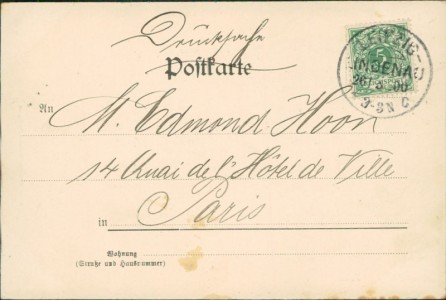 Drucksache
Postkarte
LEIPZIG-
LINDENAU
3-8N C
An M. Edmond Hoon
14 Quai de l'Hôtel de Ville
in Paris
Wohnung
(Straße und Hausnummer)